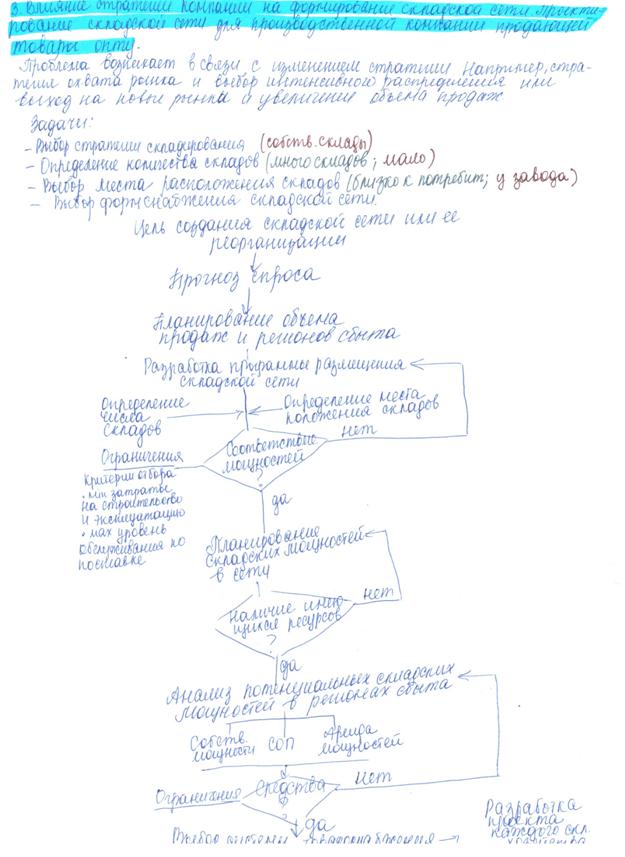 3. Влияние стратегии компании на формирование складской сети. Проекти-
рование складской сети для производственной компании продающей
товары опту.
Проблема возникает в связи с изменением стратегии. Например, стра-
тегия охвата рынка и выбор интенсивного распределения или
выход на новые рынки и увеличение объема продаж
Задачи:
- Выбор стратегии складирования (собств. склады)
- Определение количества складов (много складов; мало)
- Выбор места расположения складов (близко к потребит; у завода)
- Выбор форм снабжения складской сети.
Цель создания складской сети или ее
реорганизации
Прогноз спроса
Планирование объема
продаж и регионов сбыта
Разработка программы размещения
складской сети
Определение
числа
складов
Определение места
положения складов
Соответствие
мощностей
?
нет
Ограничения
Критерии отбора
• min затраты
на строительство
и эксплуатацию
• max уровень
обслуживания по
поставке
да
Планирование
складских мощностей
в сети
Наличие имею-
щихся ресурсов
?
нет
да
Анализ потенциальных складских
мощностей в регионах сбыта
Собств.
мощности
СОП
Аренда
мощностей
Средства
?
нет
Ограничения
да
Выбор системы товароснабжения →
Разработка
проекта
каждого скл.
хозяйства